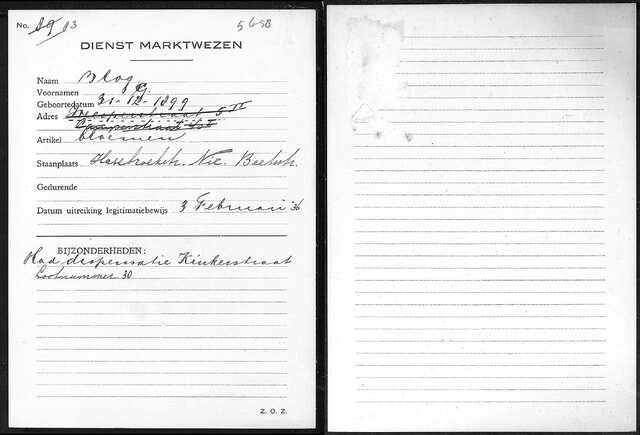 No. 19 13 5658
DIENST MARKTWEZEN
Naam Blog
Voornamen G.
Geboortedatum 31-12-1899
Adres
Artikel bloemen
Staanplaats Hasebroekstr. Nic. Beetsstr.
Gedurende
Datum uitreiking legitimatiebewijs 3 Februari '36
BIJZONDERHEDEN:
Had dispensatie Kinkerstraat
Lootnummer 30
Z. O. Z.